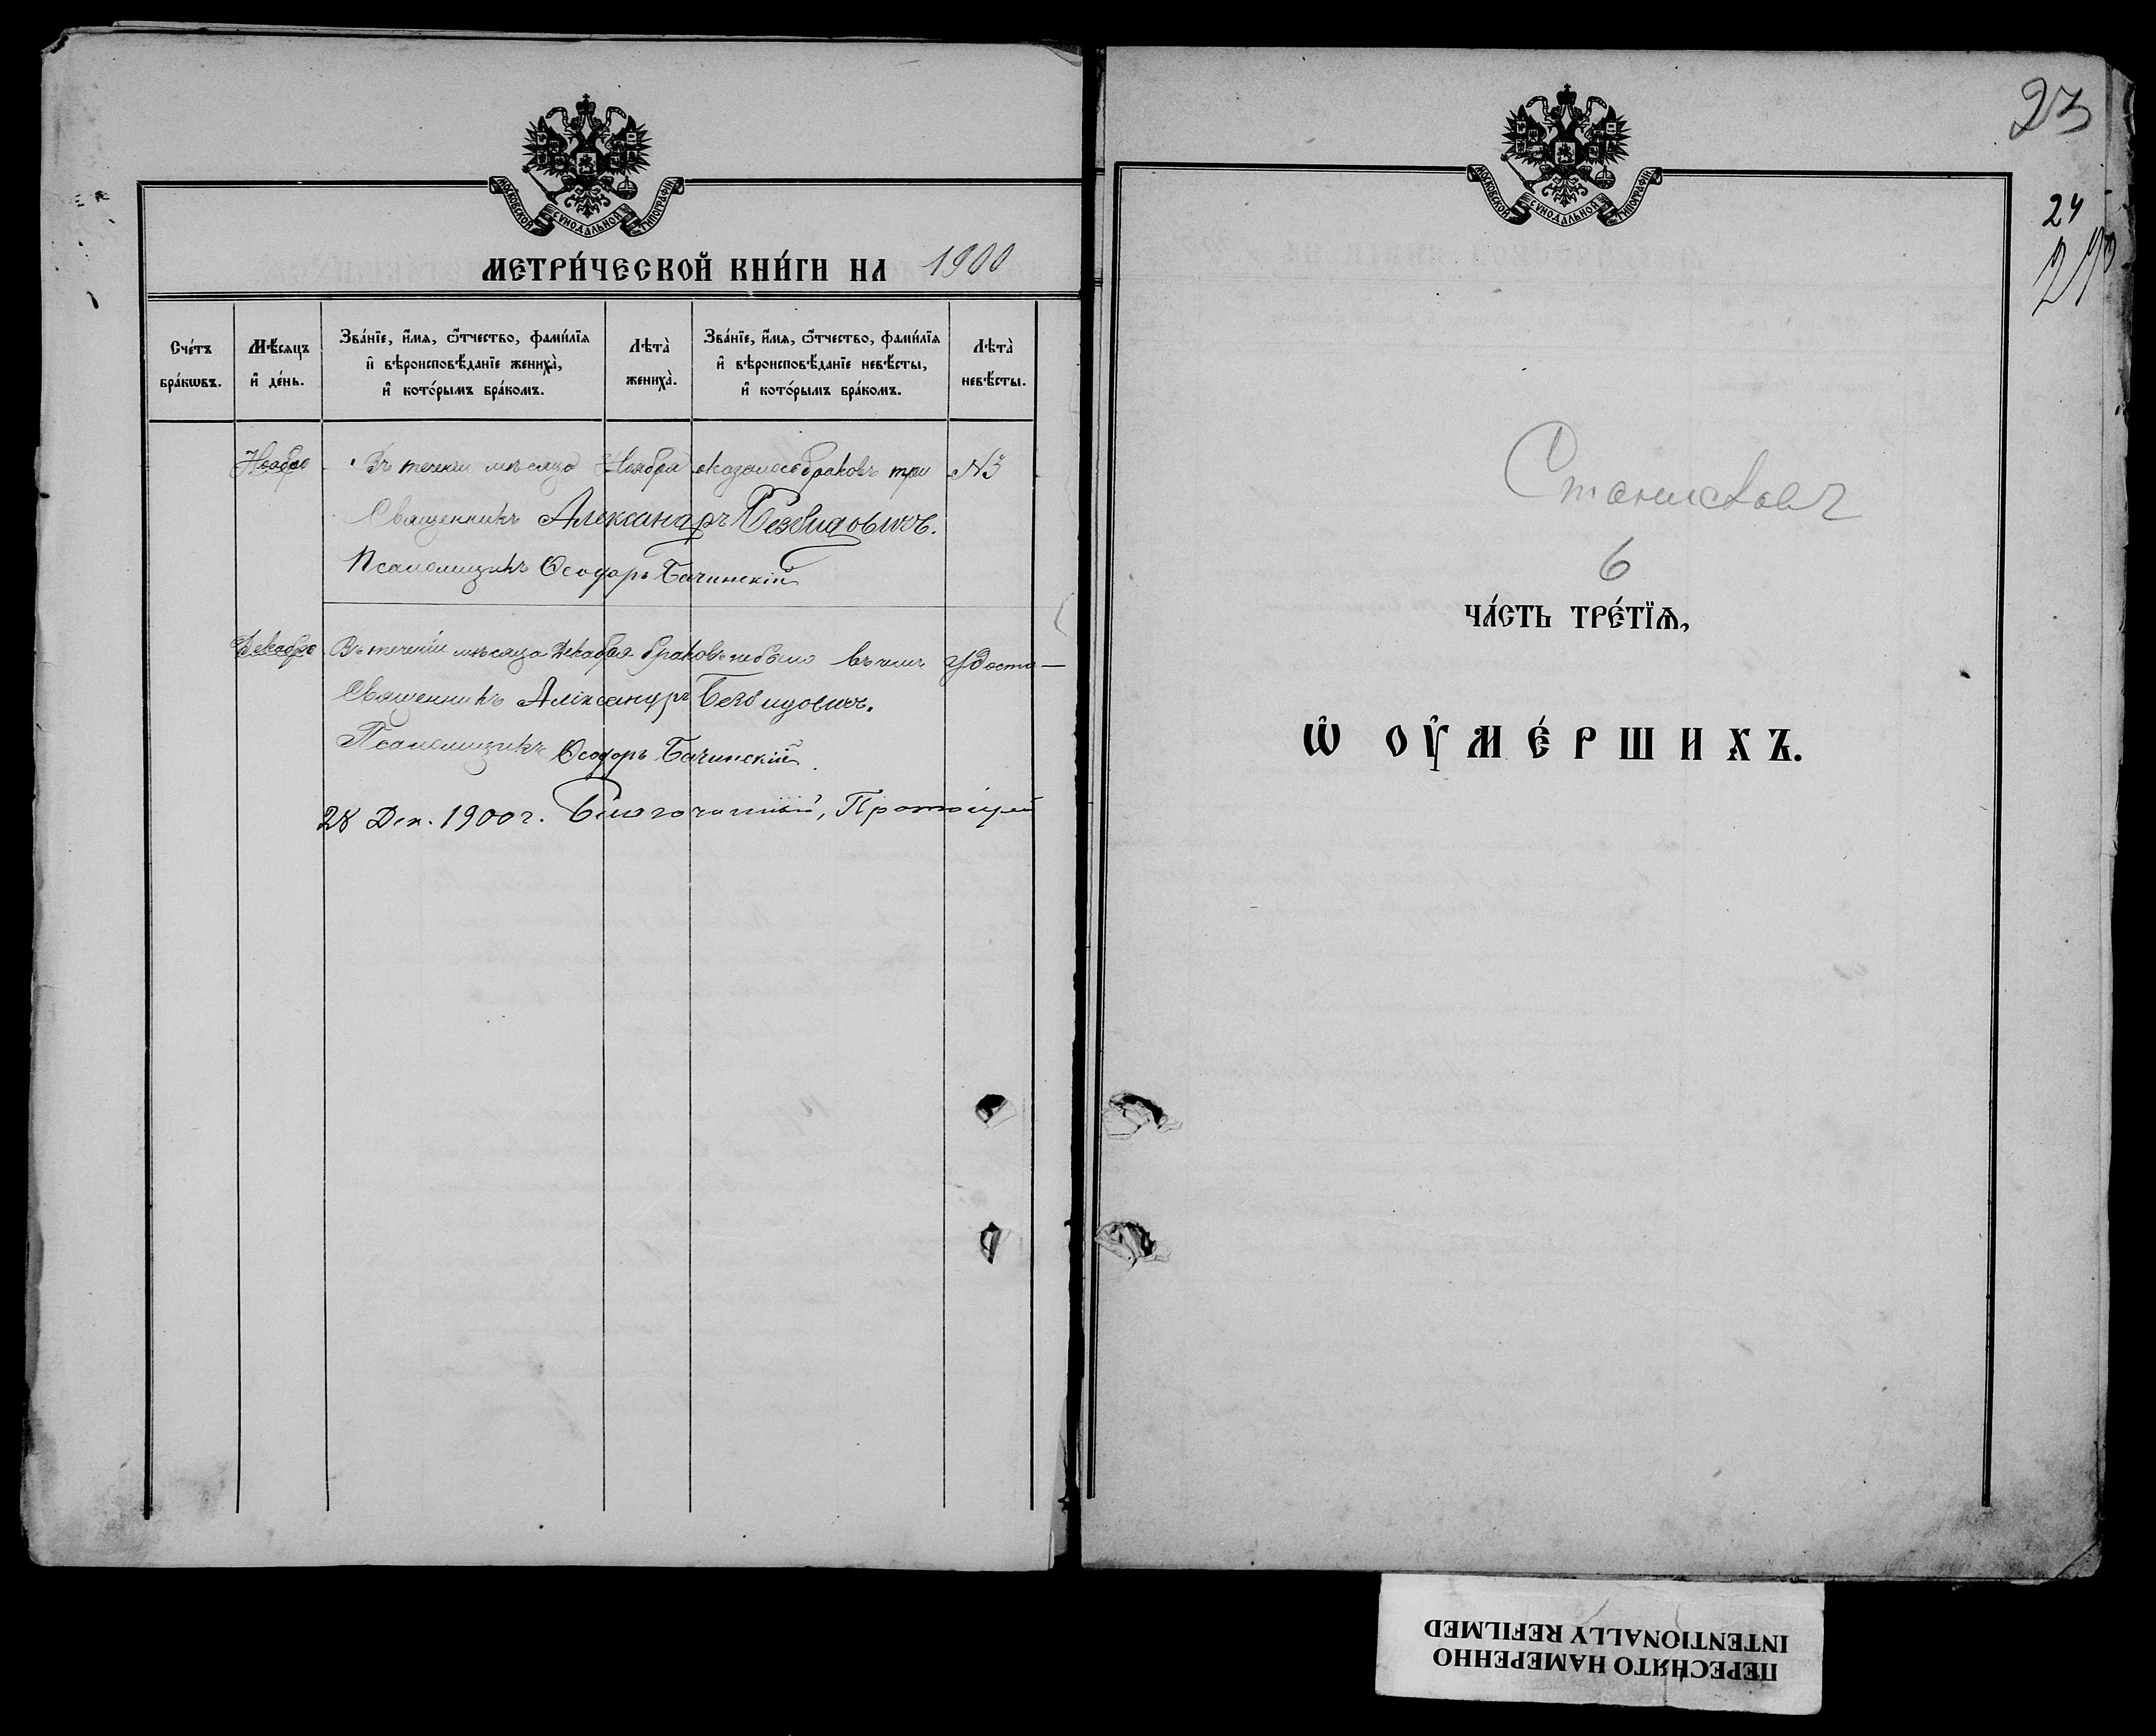 МОСКОВСКОЙ СѴНОДАЛЬНОЙ ТИПОГРАФІИ
МЕТРИ́ЧЕСКОЙ КНИ́ГИ НА 1900
Сче́тъ бра́кѡвъ.
Мѣ́сяцъ и҆ де́нь.
Зва́нїе, и҆́мѧ, ѻ҆́тчество, фами́лїѧ
и҆ вѣроисповѣ́данїе жениха̀,
и҆ кото́рымъ бра́комъ.
Лѣта̀ жениха̀.
Зва́нїе, и҆́мѧ, ѻ҆́тчество, фами́лїѧ
и҆ вѣроисповѣ́данїе невѣ́сты,
и҆ кото́рымъ бра́комъ.
Лѣта̀ невѣ́сты.
Ноябрь Въ теченіи мѣсяца Ноября оказалось браковъ три №3
Священникъ Александръ Безвидовичъ.
Псаломщикъ Ѳеодоръ Бачинскій
Декабрь Въ теченіи мѣсяца Декабря браковъ небыло въ чемъ удосто—
Священникъ Александръ Безвидовичъ.
Псаломщикъ Ѳеодоръ Бачинскій.
28 Дек. 1900 г. Благочинный, Протоіерей
23
24
МОСКОВСКОЙ СѴНОДАЛЬНОЙ ТИПОГРАФІИ
Станиславч
6
ЧА́СТЬ ТРЕ́ТЇѦ,
Ѡ҆ ОУ҆МЕ́РШИХЪ.
ПЕРЕСНЯТО НАМЕРЕННО
INTENTIONALLY REFILMED